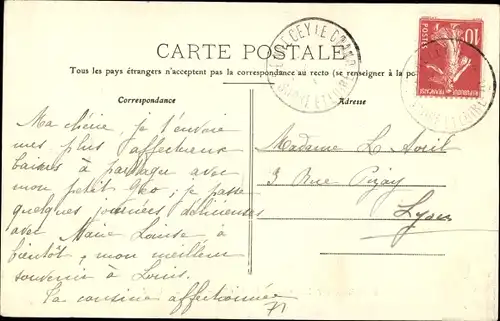 CARTE POSTALE
Tous les pays étrangers n'acceptent pas la correspondance au recto (se renseigner à la po
Correspondance
Adresse
10
POSTES
REPUBLIQUE FRANÇAISE
SAONE ET LOIRE
Ma chérie, je t'envoie
mes plus affectueux
baisers à partager avec
mon petit Geo; je passe
quelques journées délicieuses
avec Marie Louise à
bientôt, mon meilleur
souvenir à Louis.
Ta cousine affectionnée
Madame L. Avril
3 Rue Pizay
Lyon